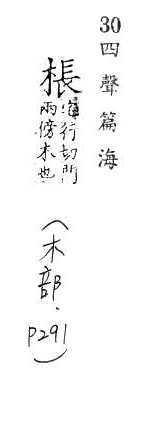 30 四聲篇海
棖
行切門
兩傍木也
（木部．P291）